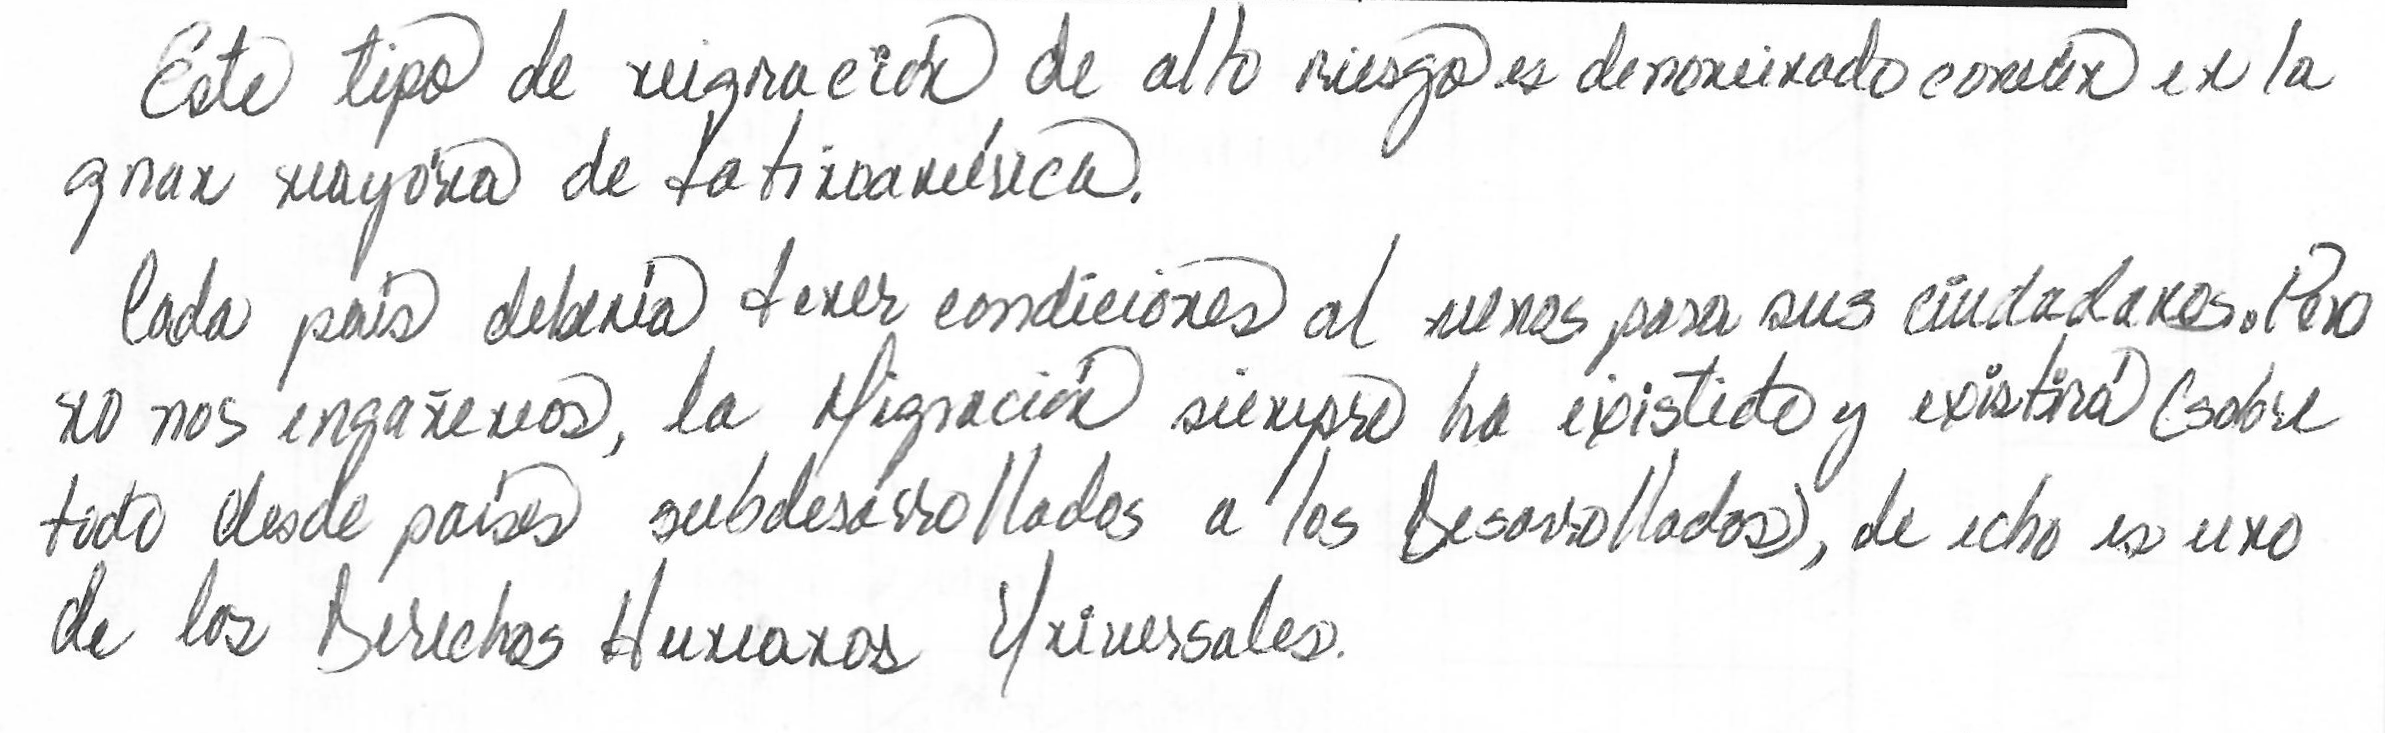 Este tipo de migración de alto riesgo es denominado común en la
gran mayoría de Latinoamérica.
Cada país debería tener condiciones al menos para sus ciudadanos. Pero
no nos engañemos, la Migración siempre ha existido y existirá (sobre
todo desde países subdesarrollados a los Desarrollados), de echo es uno
de los Derechos Humanos Universales.